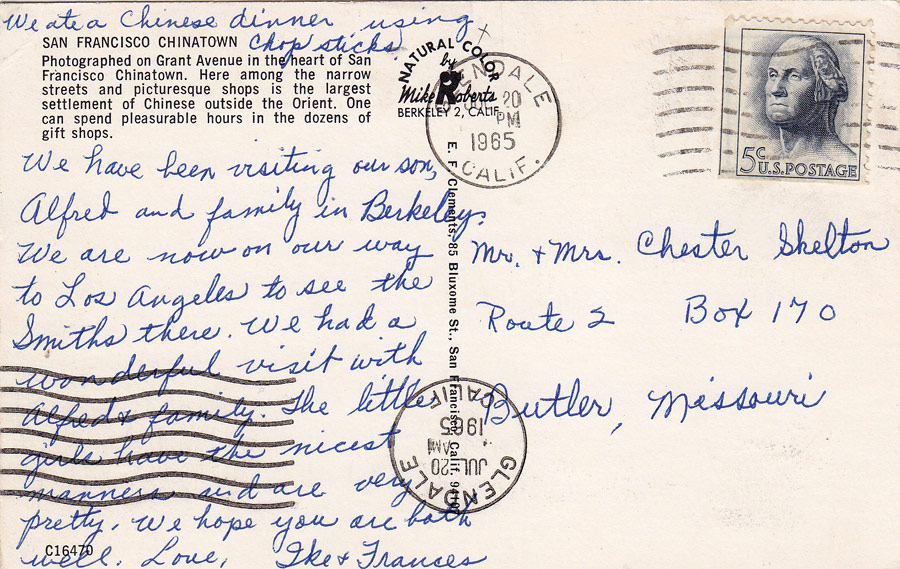 We ate a Chinese dinner using
chop sticks.
SAN FRANCISCO CHINATOWN
Photographed on Grant Avenue in the heart of San
Francisco Chinatown. Here among the narrow
streets and picturesque shops is the largest
settlement of Chinese outside the Orient. One
can spend pleasurable hours in the dozens of
gift shops.
NATURAL COLOR
by
Mike Roberts
BERKELEY 2, CALIF.
GLENDALE
20
PM
1965
CALIF.
5c
U.S. POSTAGE
We have been visiting our son,
Alfred and family in Berkeley.
We are now on our way
to Los Angeles to see the
Smiths there. We had a
wonderful visit with
Alfred & family. The little
girls have the nicest
manners and are very
pretty. We hope you are both
well. Love, Ike & Frances
C16470
E. F. Clements, 85 Bluxome St., San Francisco, Calif.
Mr. & Mrs. Chester Skelton
Route 2 Box 170
Butler, Missouri
GLENDALE
JUL 20
AM
1965
CALIF.